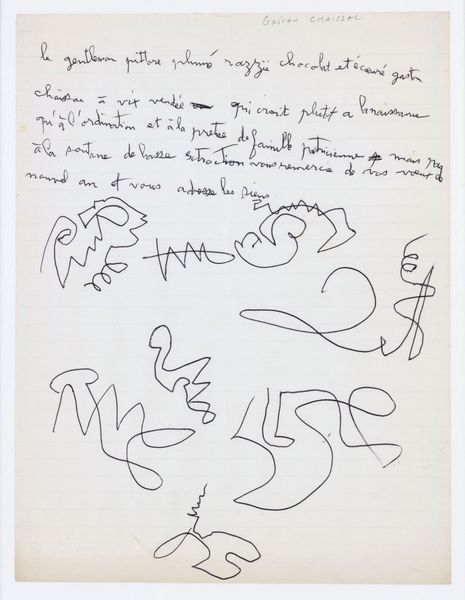 Gaston CHAISSAC
le gentleman pittore plumé razzié chocolat et écoeuré gaston
chaissac à vix vendée qui croit plutôt a la naissance
qu'à l'ordination et à la prêtrise de famille patricienne mais pas
à la soutane de basse extraction vous remercie de vos voeux de
nouvel an et vous adresse les siens.